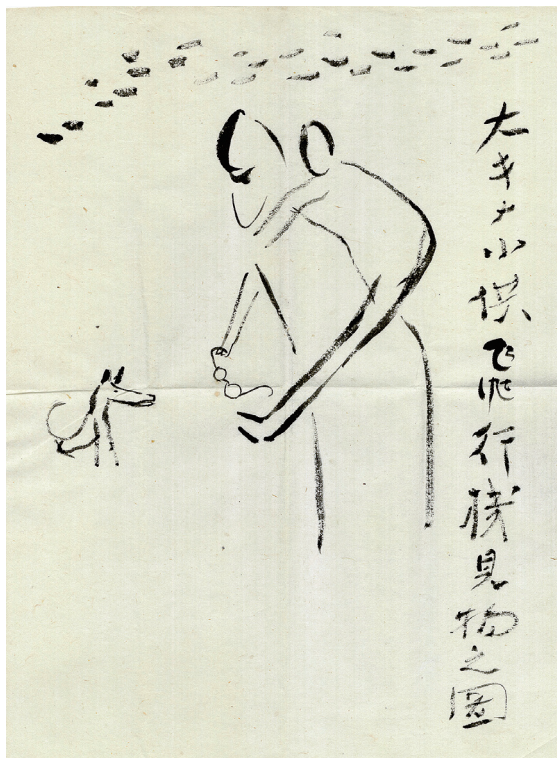 大キナ小供飛行機見物之圖